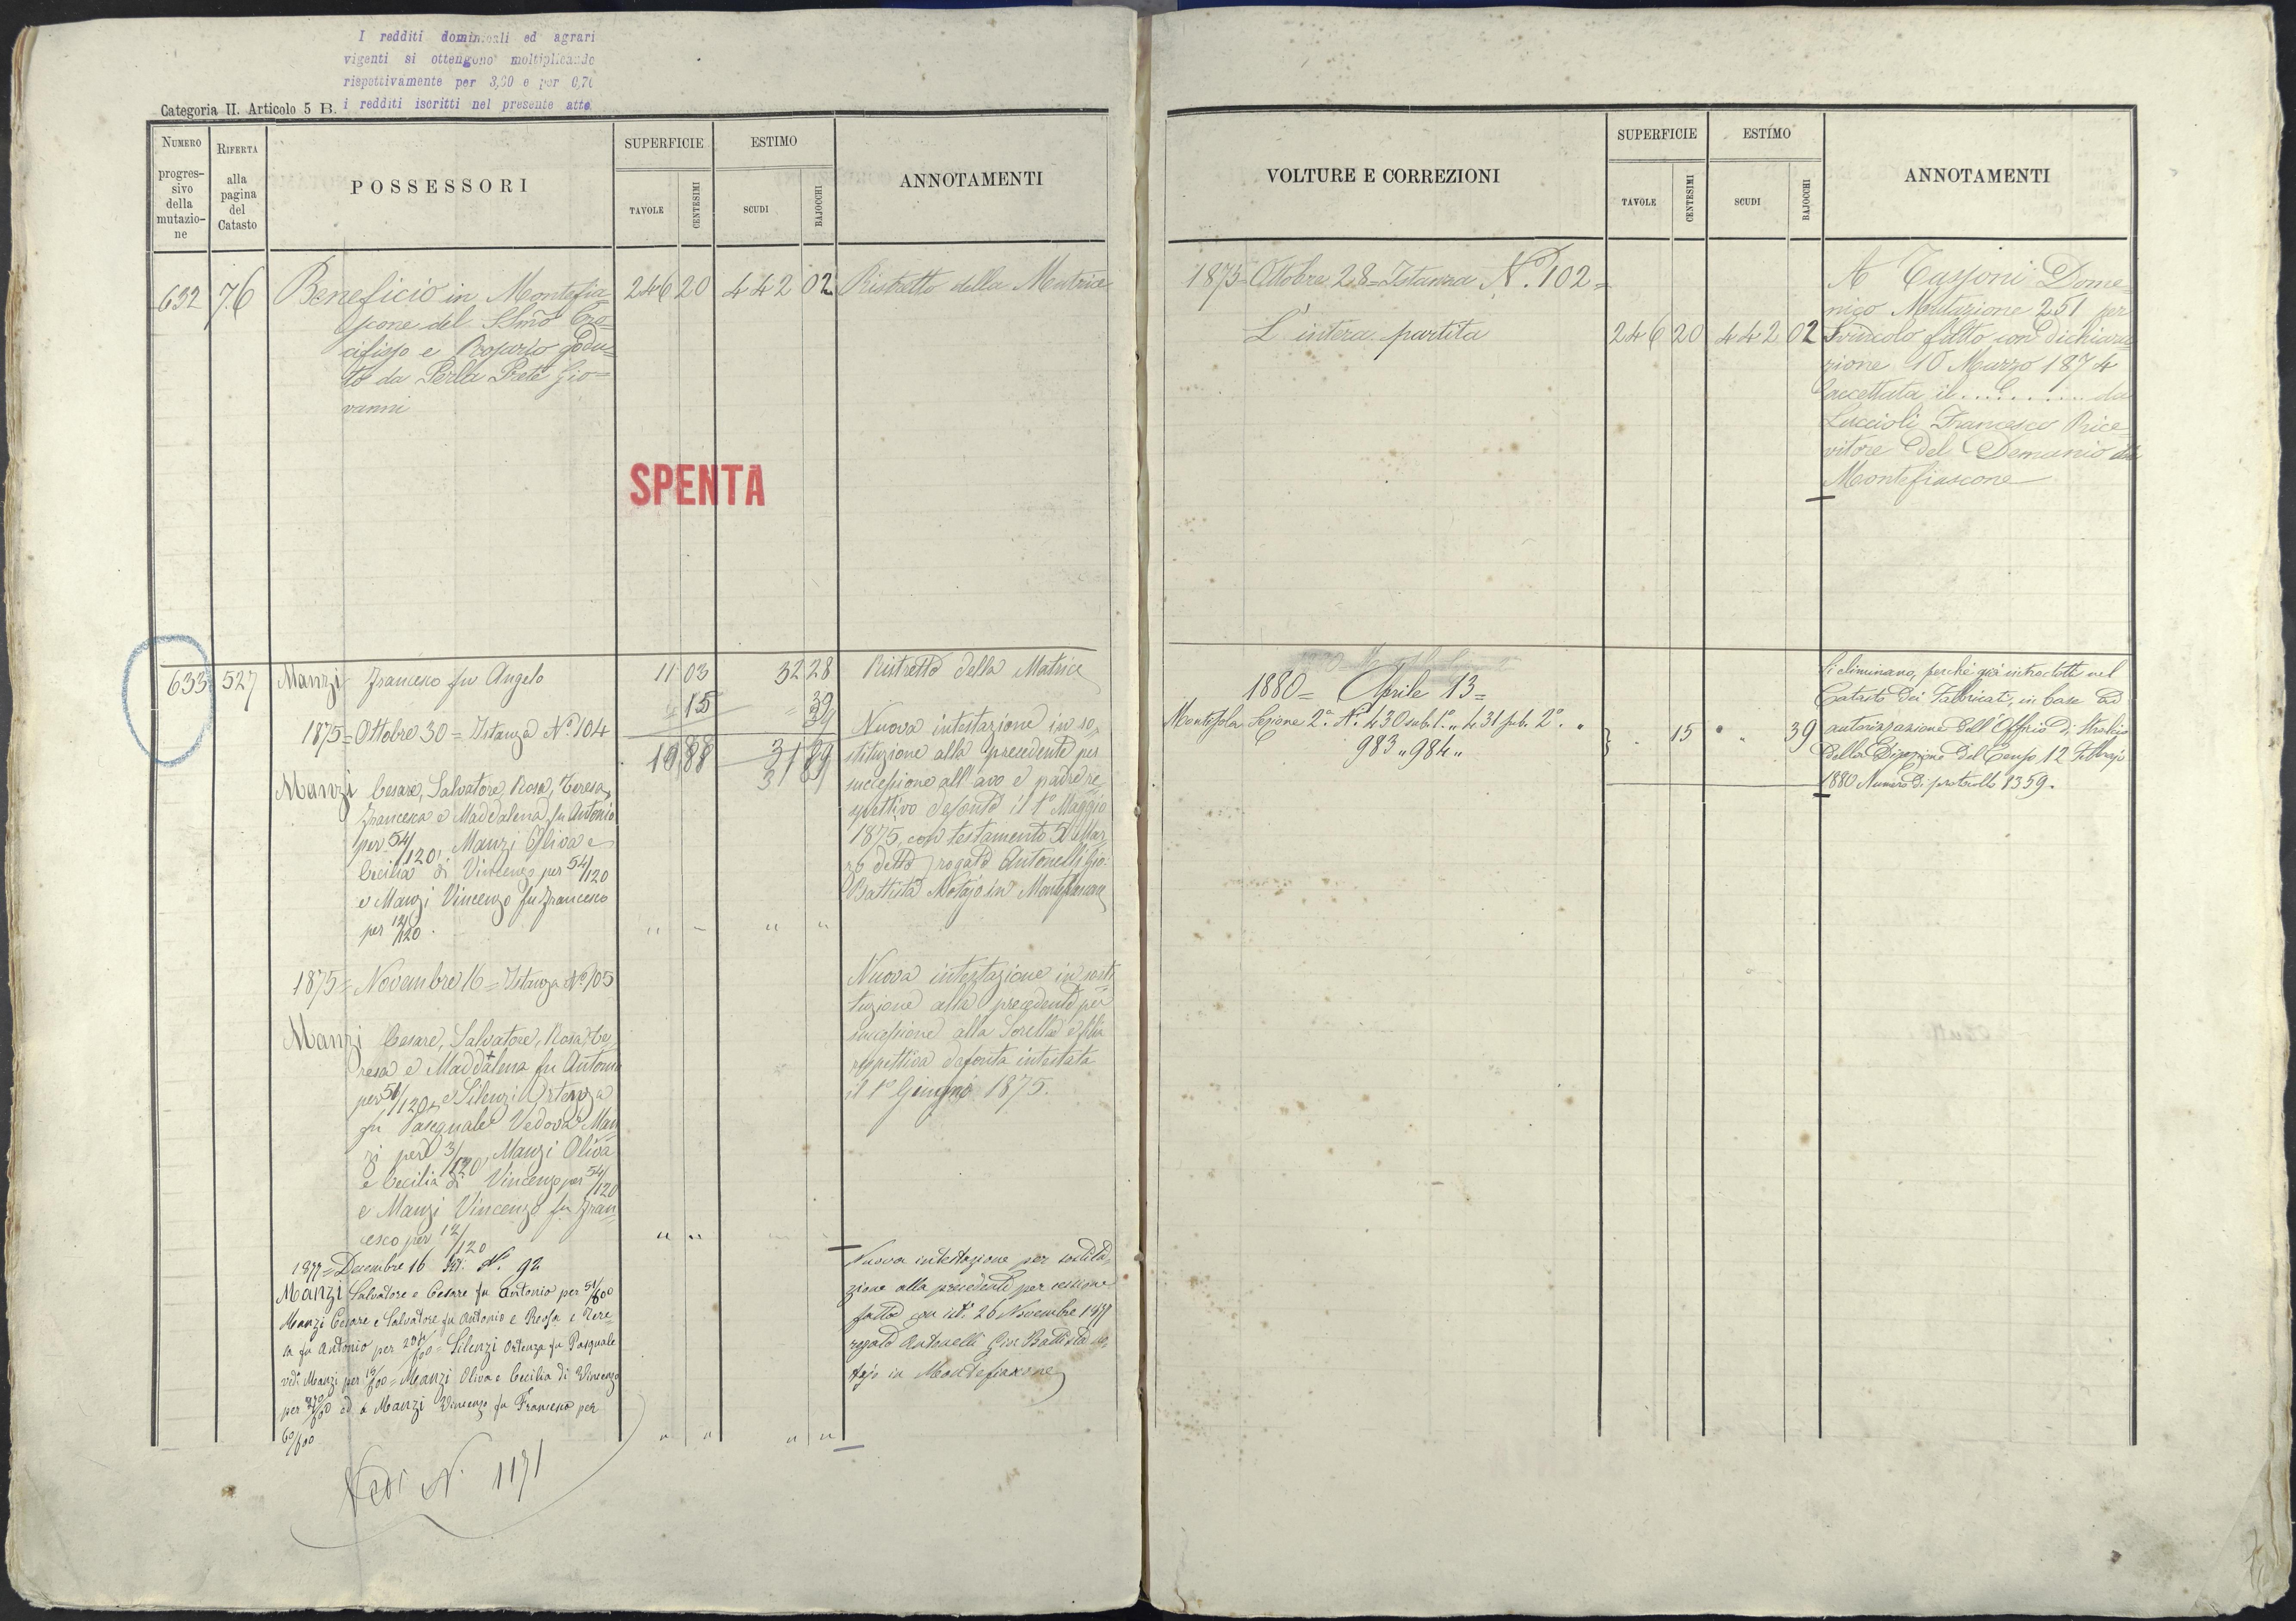 I redditi dominicali ed agrari
vigenti si ottengono moltiplicando
rispettivamente per 3,30 e per 0,70
i redditi iscritti nel presente atto.
Categoria II. Articolo 5 B.
NUMERO progressivo della mutazione
RIFERTA alla pagina del Catasto
POSSESSORI
SUPERFICIE
TAVOLE
CENTESIMI
ESTIMO
SCUDI
BAJOCCHI
ANNOTAMENTI
632 76 Beneficio in Montefia= 246 20 442 02 Ristretto della Matrice
scone del SSmo Cro=
cifisso e Rosario godu=
to da Perla Prete Gio=
vanni
SPENTA
633 527 Manzi Francesco fu Angelo 11 03 32 28 Ristretto della Matrice
15 39
1875 = Ottobre 30 = Istanza No. 104
10 88 31 89
Manzi Cesare, Salvatore, Rosa, Teresa,
Francesca e Maddalena fu Antonio
per 54/120, Manzi Oliva e
Cecilia di Vincenzo per 54/120
e Manzi Vincenzo fu Francesco
per 12/120.
Nuova intestazione in so
stituzione alla precedente per
successione all'avo e padre re
spettivo defonto il 1o Maggio
1875, con testamento 5 Mar
zo detto rogato Antonelli Gio:
Battista Notajo in Montefiascone
1875 = Novembre 16 = Istanza No. 105
Manzi Cesare, Salvatore, Rosa, Te
resa e Maddalena fu Antonio
per 51/120, e Silenzi Ortenza
fu Pasquale Vedova Man
zi per 3/120, Manzi Oliva
e Cecilia di Vincenzo per 54/120
e Manzi Vincenzo fu Fran
cesco per 12/120
Nuova intestazione in sosti
tuzione alla precedente per
successione alla Sorella e figlia
respettiva defonta intestata
il 1o Giugno 1875.
1877 = Decembre 16 Ist. No. 92
Manzi Salvatore e Cesare fu Antonio per 51/600
Manzi Cesare e Salvatore fu Antonio e Rosa e Tere=
sa fu Antonio per 204/600 = Silenzi Ortenza fu Pasquale
ved. Manzi per 15/600 = Manzi Oliva e Cecilia di Vincenzo
per 270/600 ed a Manzi Vincenzo fu Francesco per
60/600
Nuova intestazione per sostitu
zione alla precedente per cessione
fatta con ist. 26 Novembre 1877
rogato Antonelli Gio: Battista no
tajo in Montefiascone
Vedi N. 1171
VOLTURE E CORREZIONI
SUPERFICIE
TAVOLE
CENTESIMI
ESTIMO
SCUDI
BAJOCCHI
ANNOTAMENTI
1875 = Ottobre 28 = Istanza No. 102 =
L'intera partita 246 20 442 02
A Tassoni Dome=
nico Mutazione 251 per
Svincolo fatto con dichiara
zione 10 Marzo 1874
accettata il .......... da
Luccioli Francesco Rice=
vitore del Demanio di
Montefiascone
1880 = Aprile 13 =
Montisola Sezione 2a. No. 430 sub. 1o. " 431 sub. 2o. "
983 " 984 "
15 39
Si eliminano, perchè già introdotti nel
Catasto dei Fabbricati, in base ad
autorizzazione dell'Officio di Stralcio
della Direzione del Censo 12 Febbrajo
1880 Numero di protocollo 1359.